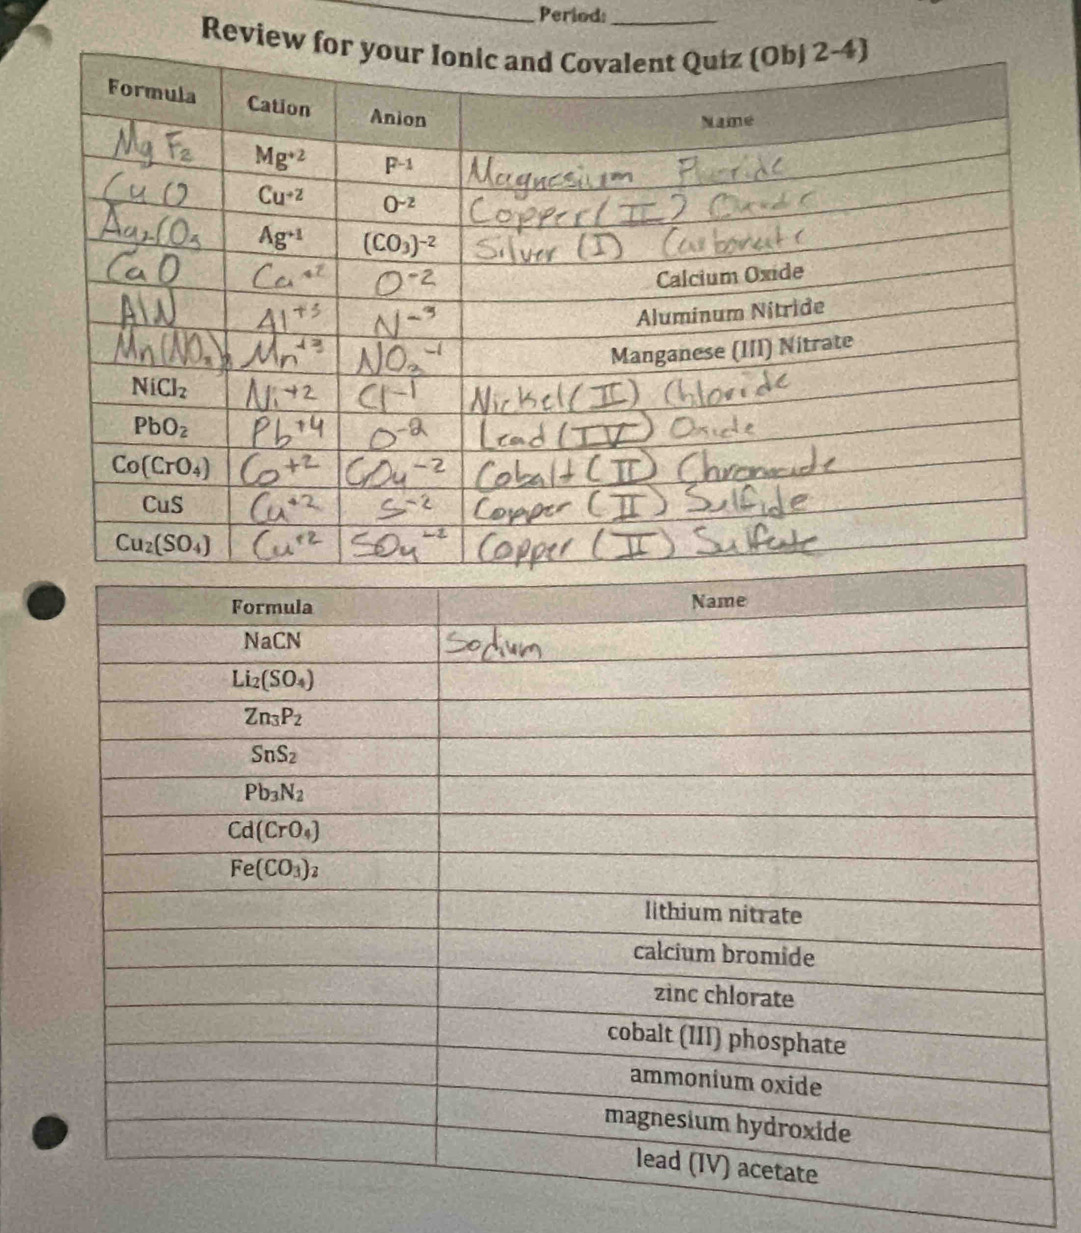 Period: ________
Review for your Ionic and Covalent Quiz (Obj 2-4)
Formula Cation Anion Name
MgF₂ Mg⁺² F⁻¹ Magnesium Fluoride
CuO Cu⁺² O⁻² Copper (II) Oxide
Ag₂CO₃ Ag⁺¹ (CO₃)⁻² Silver (I) Carbonate
CaO Ca⁺² O⁻² Calcium Oxide
AlN Al⁺³ N⁻³ Aluminum Nitride
Mn(NO₃)₃ Mn⁺³ NO₃⁻¹ Manganese (III) Nitrate
NiCl₂ Ni⁺² Cl⁻¹ Nickel (II) Chloride
PbO₂ Pb⁺⁴ O⁻² Lead (IV) Oxide
Co(CrO₄) Co⁺² CrO₄⁻² Cobalt (II)
CuS Cu⁺² S⁻² Copper (II) Sulfide
Cu₂(SO₄) Cu⁺² SO₄⁻² Copper (II) Sulfate
Formula Name
NaCN Sodium
Li₂(SO₄)
Zn₃P₂
SnS₂
Pb₃N₂
Cd(CrO₄)
Fe(CO₃)₂
lithium nitrate
calcium bromide
zinc chlorate
cobalt (III) phosphate
ammonium oxide
magnesium hydroxide
lead (IV) acetate